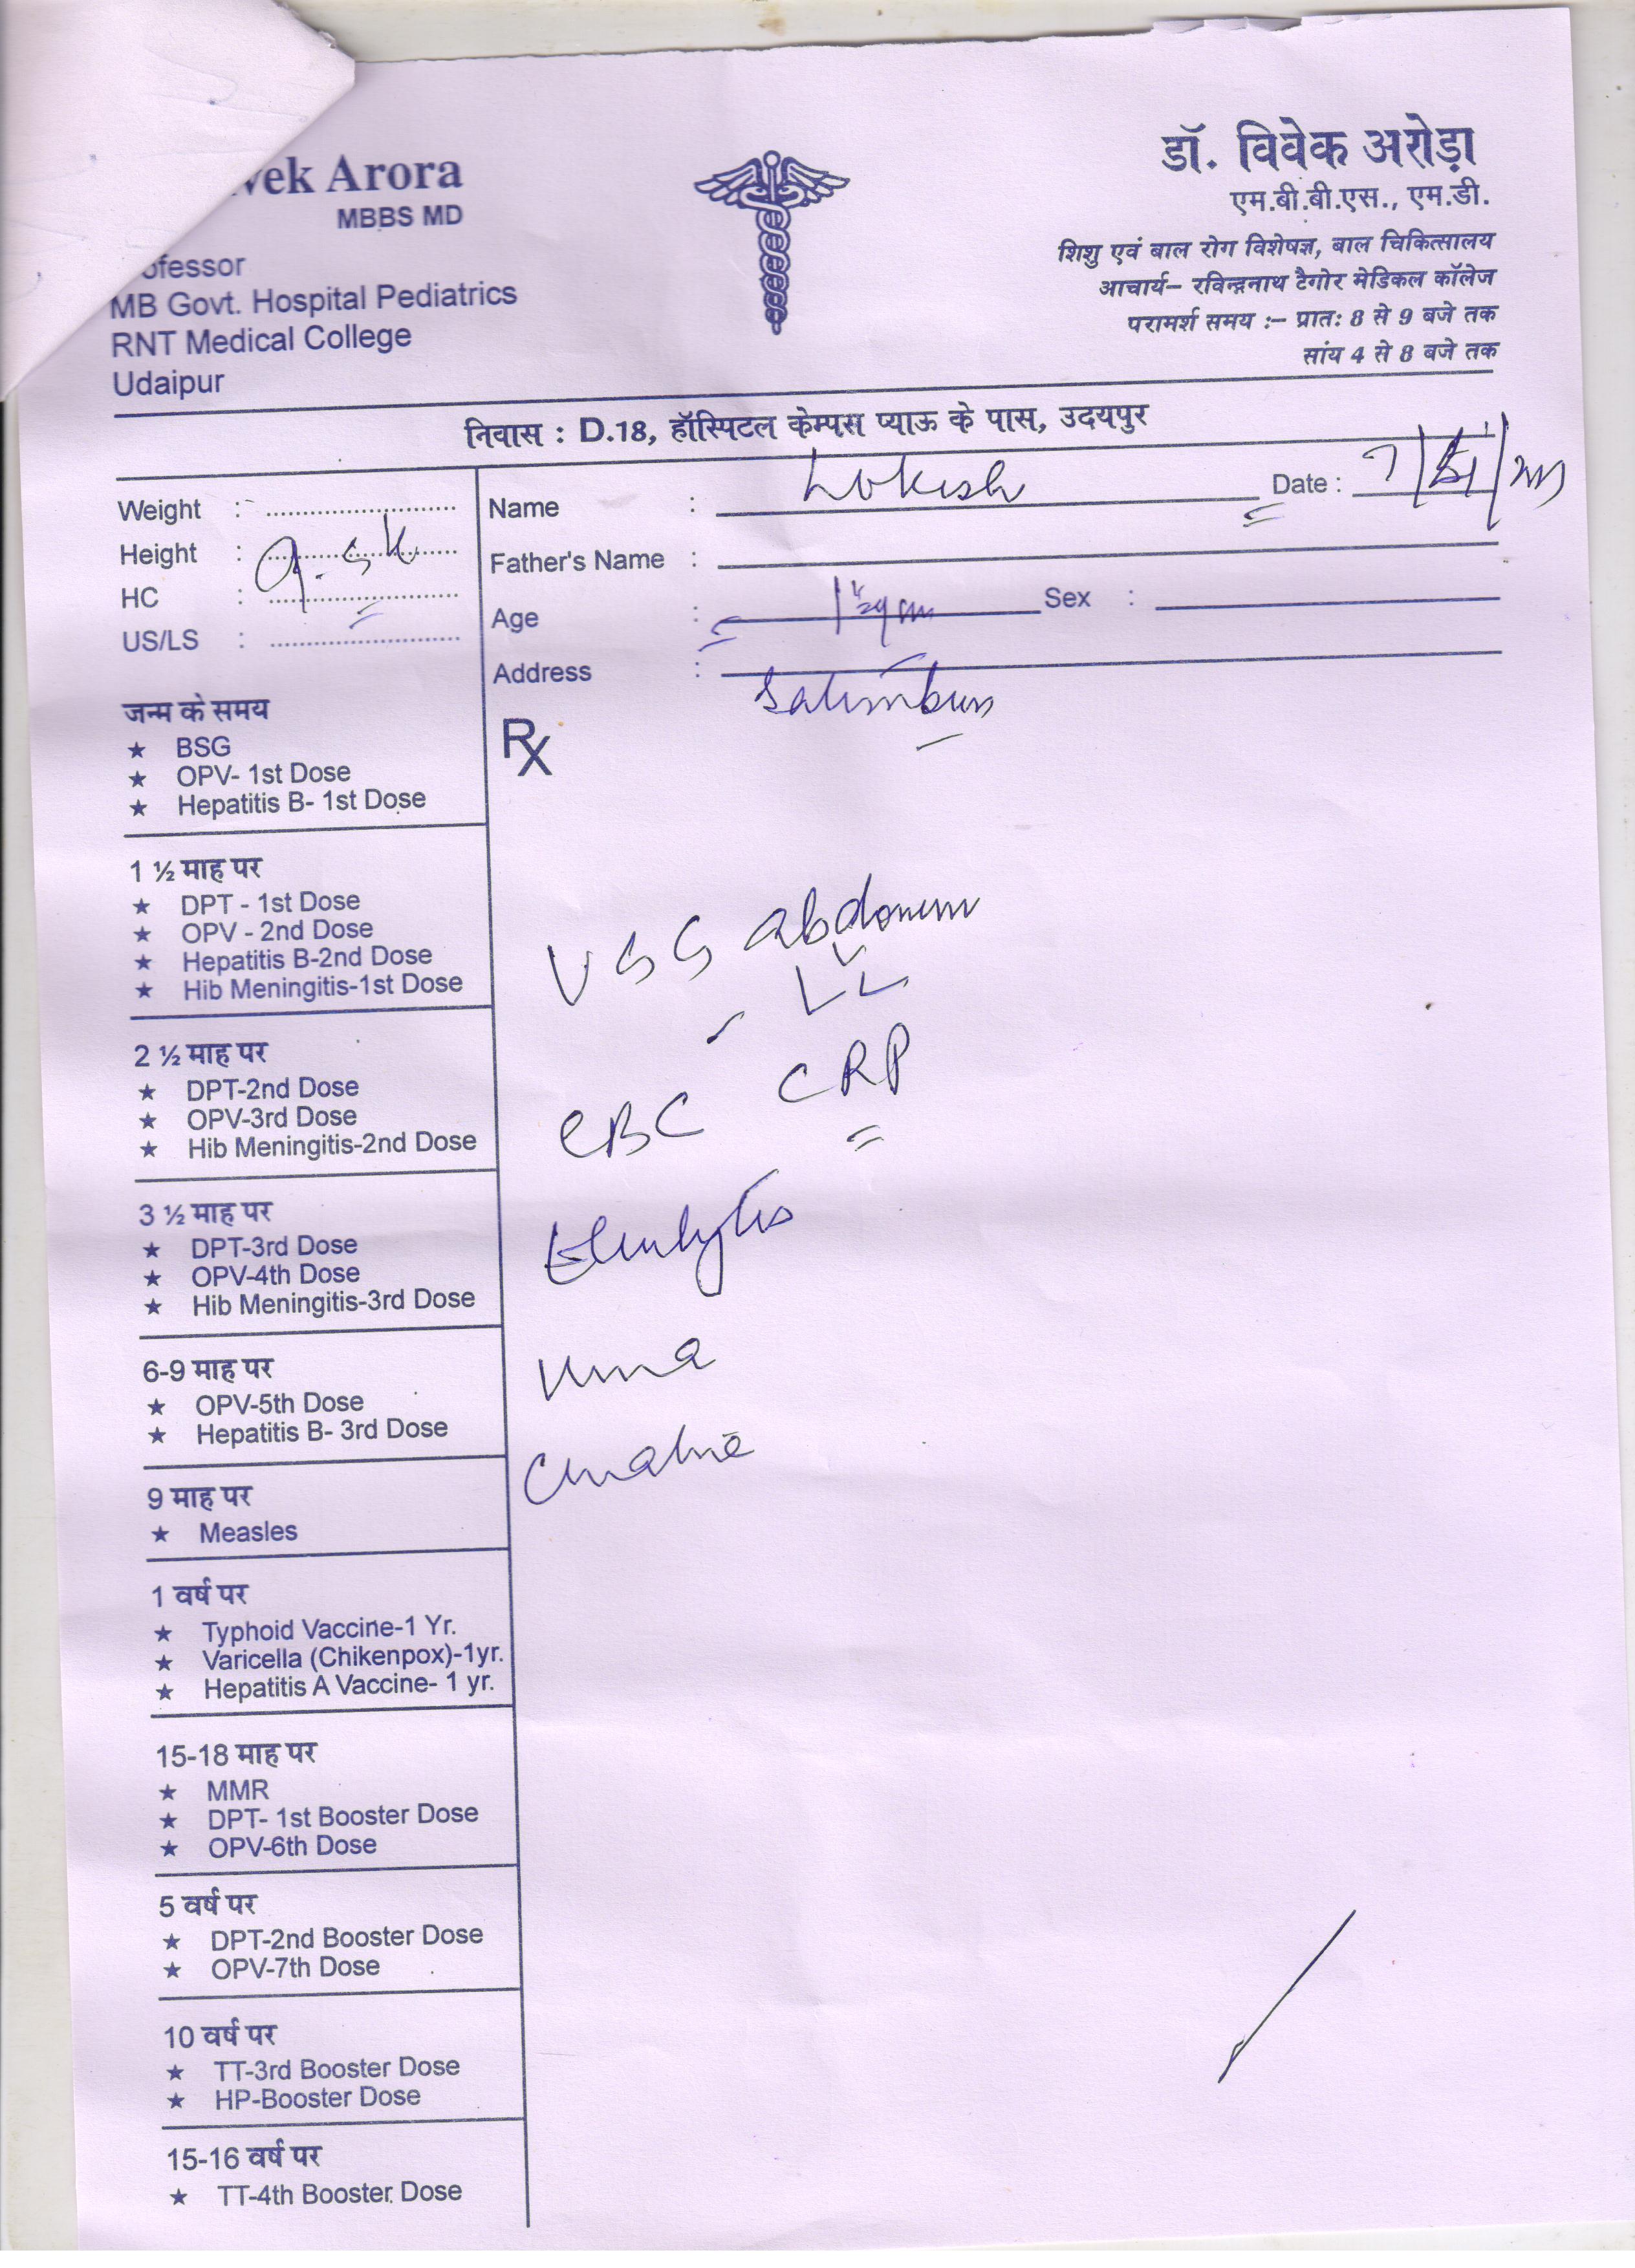 vek Arora
MBBS MD
ofessor
MB Govt. Hospital Pediatrics
RNT Medical College
Udaipur
डॉ. विवेक अरोड़ा
एम.बी.बी.एस., एम.डी.
शिशु एवं बाल रोग विशेषज्ञ, बाल चिकित्सालय
आचार्य– रविन्द्रनाथ टैगोर मेडिकल कॉलेज
परामर्श समय :– प्रातः 8 से 9 बजे तक
सांय 4 से 8 बजे तक
निवास : D.18, हॉस्पिटल केम्पस प्याऊ के पास, उदयपुर
Weight :
Height :
HC :
US/LS :
Name : Lokesh Date :
Father's Name :
Age : Sex :
Address :
जन्म के समय
★ BSG
★ OPV- 1st Dose
★ Hepatitis B- 1st Dose
1 ½ माह पर
★ DPT - 1st Dose
★ OPV - 2nd Dose
★ Hepatitis B-2nd Dose
★ Hib Meningitis-1st Dose
2 ½ माह पर
★ DPT-2nd Dose
★ OPV-3rd Dose
★ Hib Meningitis-2nd Dose
3 ½ माह पर
★ DPT-3rd Dose
★ OPV-4th Dose
★ Hib Meningitis-3rd Dose
6-9 माह पर
★ OPV-5th Dose
★ Hepatitis B- 3rd Dose
9 माह पर
★ Measles
1 वर्ष पर
★ Typhoid Vaccine-1 Yr.
★ Varicella (Chikenpox)-1yr.
★ Hepatitis A Vaccine- 1 yr.
15-18 माह पर
★ MMR
★ DPT- 1st Booster Dose
★ OPV-6th Dose
5 वर्ष पर
★ DPT-2nd Booster Dose
★ OPV-7th Dose
10 वर्ष पर
★ TT-3rd Booster Dose
★ HP-Booster Dose
15-16 वर्ष पर
★ TT-4th Booster Dose
Rx
USG abdomen
CBC CRP
Electrolytes
Urea
Creatine